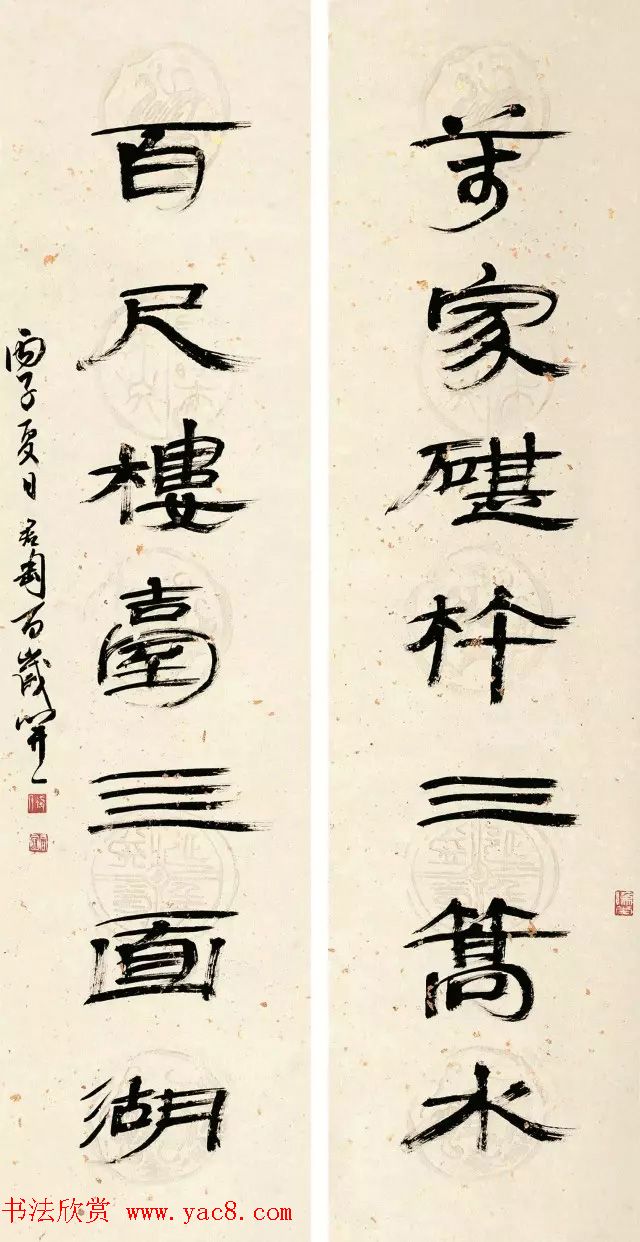 萬家碪杵三篙水
百尺樓臺三面湖
丙子夏日君匋百歲開一
书法欣赏 www.yac8.com